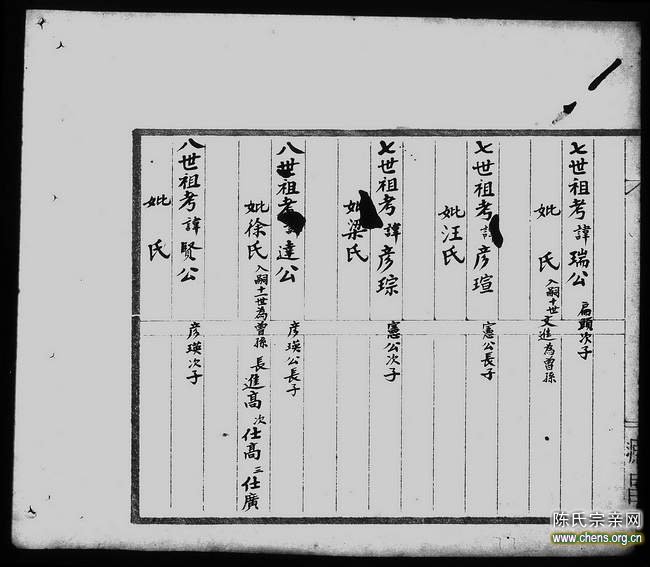 七世祖考諱瑞公 扁頭次子
妣 氏 入嗣十世文進為曾孫
七世祖考諱彦瑄 憲公長子
妣汪氏
七世祖考諱彦琮 憲公次子
妣梁氏
八世祖考諱達公 彦瑛公長子
妣徐氏 入嗣十一世為曾孫 長進高 次仕高 三仕廣
八世祖考諱賢公 彦瑛次子
妣 氏
陈氏宗亲网
www.chens.org.cn